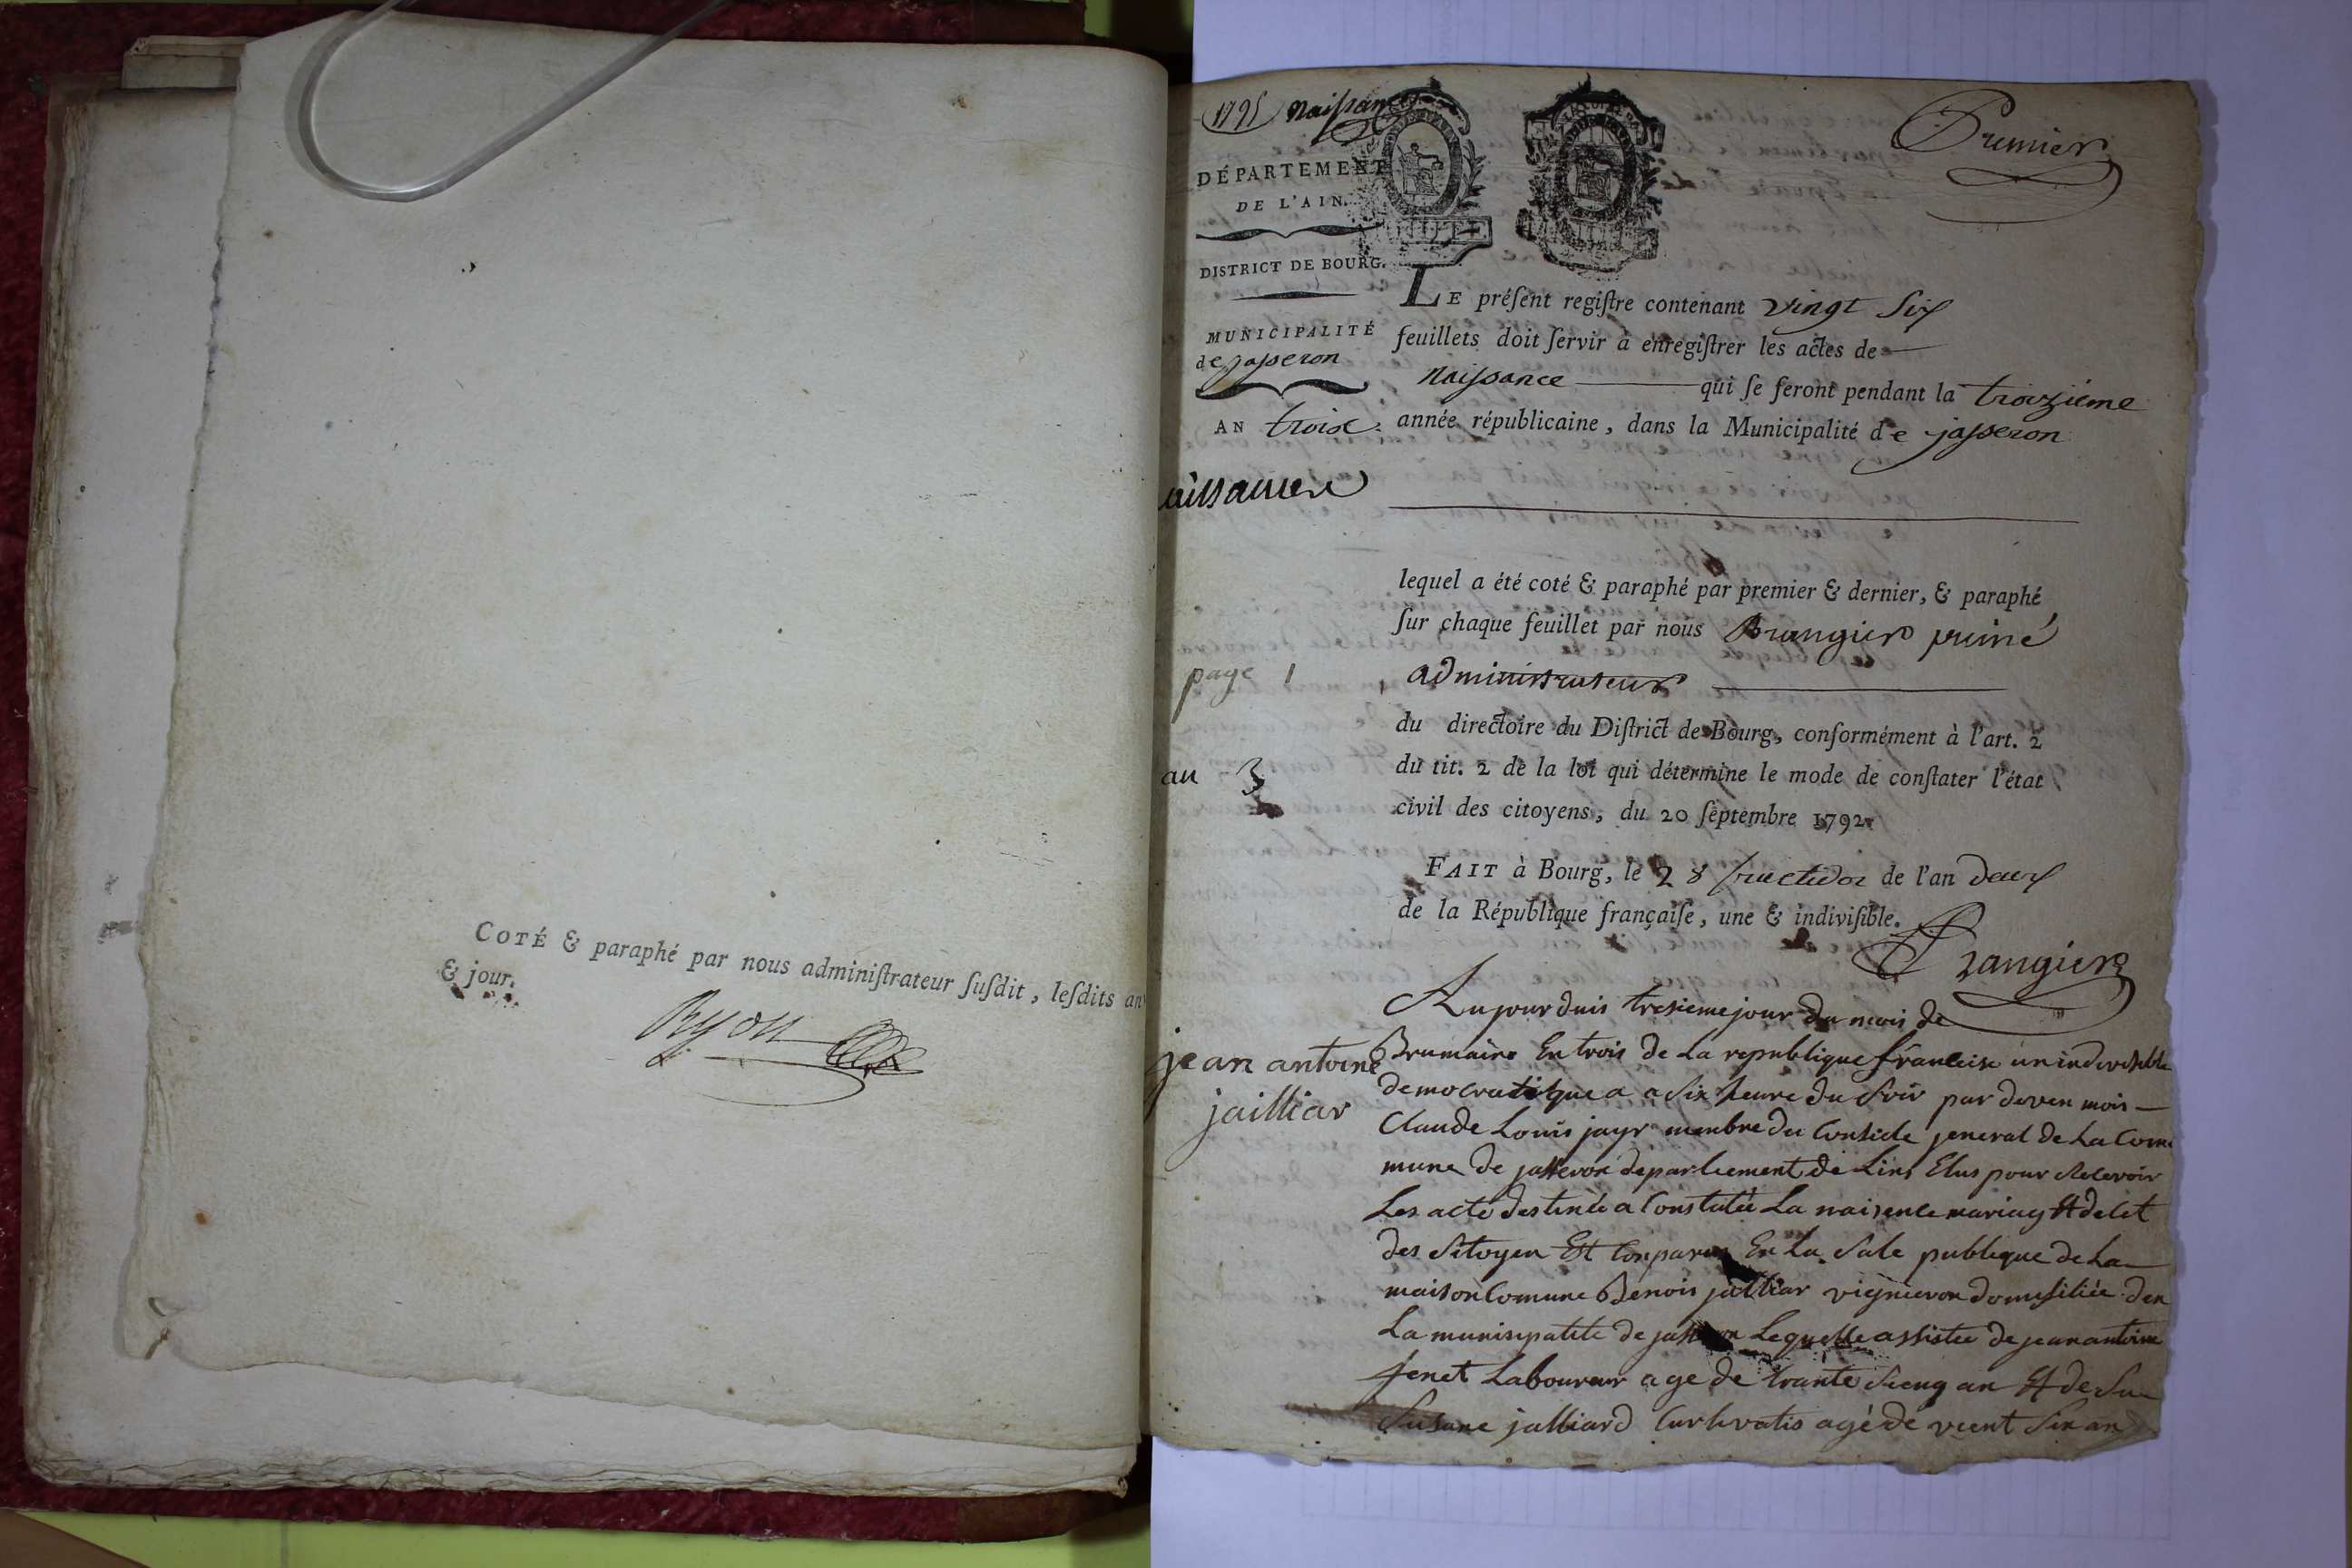 COTÉ & paraphé par nous adminiſtrateur ſuſdit, leſdits an
& jour.
Ryon
1795 Naissance
Premier
DÉPARTEMENT
DE L'AIN.
DISTRICT DE BOURG.
MUNICIPALITÉ
de jasseron
AN troix.
LE préſent regiſtre contenant vingt Six
feuillets doit ſervir à enregiſtrer les actes de
Naissance qui ſe feront pendant la troizième
année républicaine, dans la Municipalité de jasseron
aissance
lequel a été coté & paraphé par premier & dernier, & paraphé
ſur chaque feuillet par nous Brangier puiné
administrateur
page 1
du directoire du Diſtrict de Bourg, conformément à l'art. 2
du tit. 2 de la loi qui détermine le mode de conſtater l'état
civil des citoyens, du 20 ſeptembre 1792.
an 3
FAIT à Bourg, le 28 fructidor de l'an deux
de la République françaiſe, une & indiviſible.
Brangier
jean antoine
jailliar
Aujourduis tresieme jour du mois de
Brumaire En trois de La republique francaise un indivisible
democratique a a Six heure du Soir par deven mois
Claude Louis jayr menbre du Conside jeneral de La Com
mune de jasseron departiement de Lins Elus pour Recevoir
Les acte destinée a Constatée La naisence mariag Et delet
des Sitoyen Est Conparus En La Sale publique de La
maison Comune Benois jalliar vignieron domisiliée den
La munisipalite de jasseron Lequelle assistee de jean antoine
jenet Laboureur age de trante Sieng an Et de Su
Susane jalliard Curlivatis agé de vient Six an